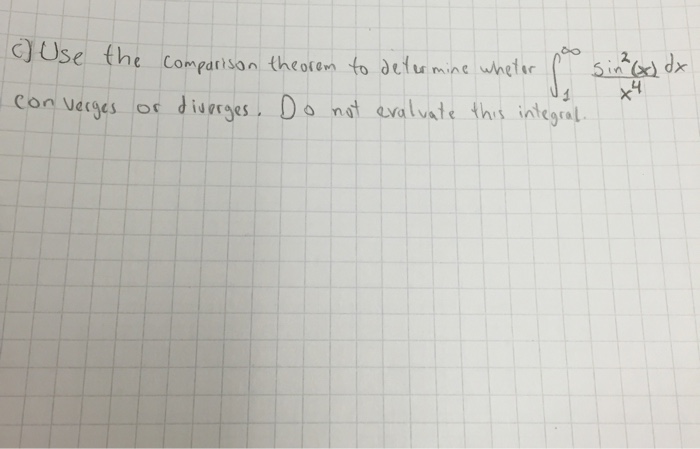 c) Use the comparison theorem to determine wheter ∫₁^∞ sin²(x)/x⁴ dx
converges or diverges. Do not evaluate this integral.